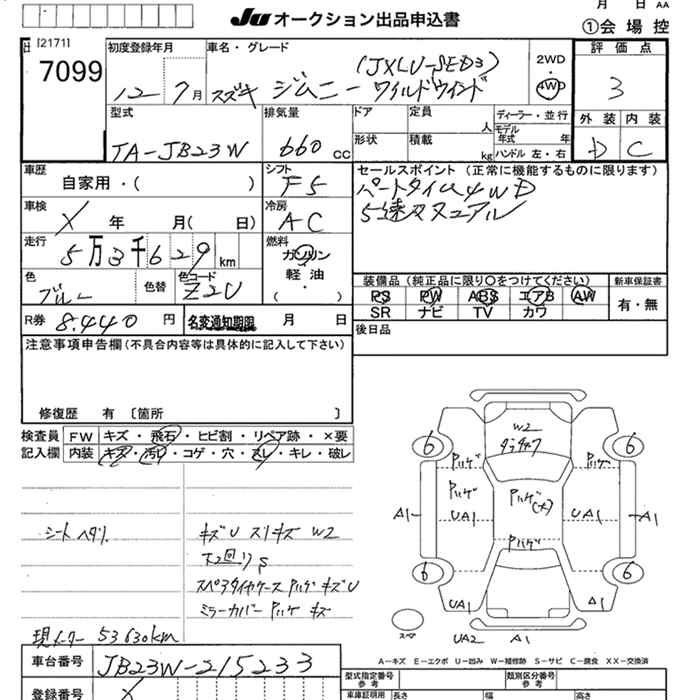 月 AA
JU オークション出品申込書
①会場控
[2171]
7099
初度登録年月
12 7月
車名・グレード
(JXLU-SED3)
スズキ ジムニー ワイルドウインド
2WD
4WD
評価点
3
外装 内装
D C
型式
TA-JB23W
排気量
660 cc
ドア
定員
人
形状
積載
kg
ディーラー・並行
モデル年式 年
ハンドル 左・右
車歴
自家用・( )
シフト
F5
セールスポイント (正常に機能するものに限ります)
パートタイム4WD
5速マニュアル
車検
X 年 月( 日)
冷房
AC
走行
5万3千629km
燃料
ガソリン
軽油・
( )
色
ブルー
色替
色コード
Z2U
装備品 (純正品に限り○をつけてください)
新車保証書
PS PW ABS エアB AW
SR ナビ TV カワ
有・無
R券 8,440 円
名変通知期限 月 日
後日品
注意事項申告欄(不具合内容等は具体的に記入して下さい)
修復歴 有 〔箇所 〕
検査員記入欄
FW キズ・飛石・ヒビ割・リペア跡・×要
内装 キズ・汚レ・コゲ・穴・スレ・キレ・破レ
シートヘタリ
キズU スリキズ W2
下回りS
スペアタイヤケース Pハゲ キズU
ミラーカバー Pハゲ キズ
現メーター 53,630km
W2
6 6
Pハゲ Pハゲ
Pハゲ
Pハゲ(大)
A1 UA1 UA1 A1
Pハゲ
6 6
UA1 A1
スペア
UA2 A1
A-キズ E-エクボ U-凹み W-補修跡 S-サビ C-腐食 XX-交換済
車台番号 JB23W-215233
登録番号 X
型式指定番号 参考
類別区分番号 参考
車庫証明用 長さ 幅 高さ